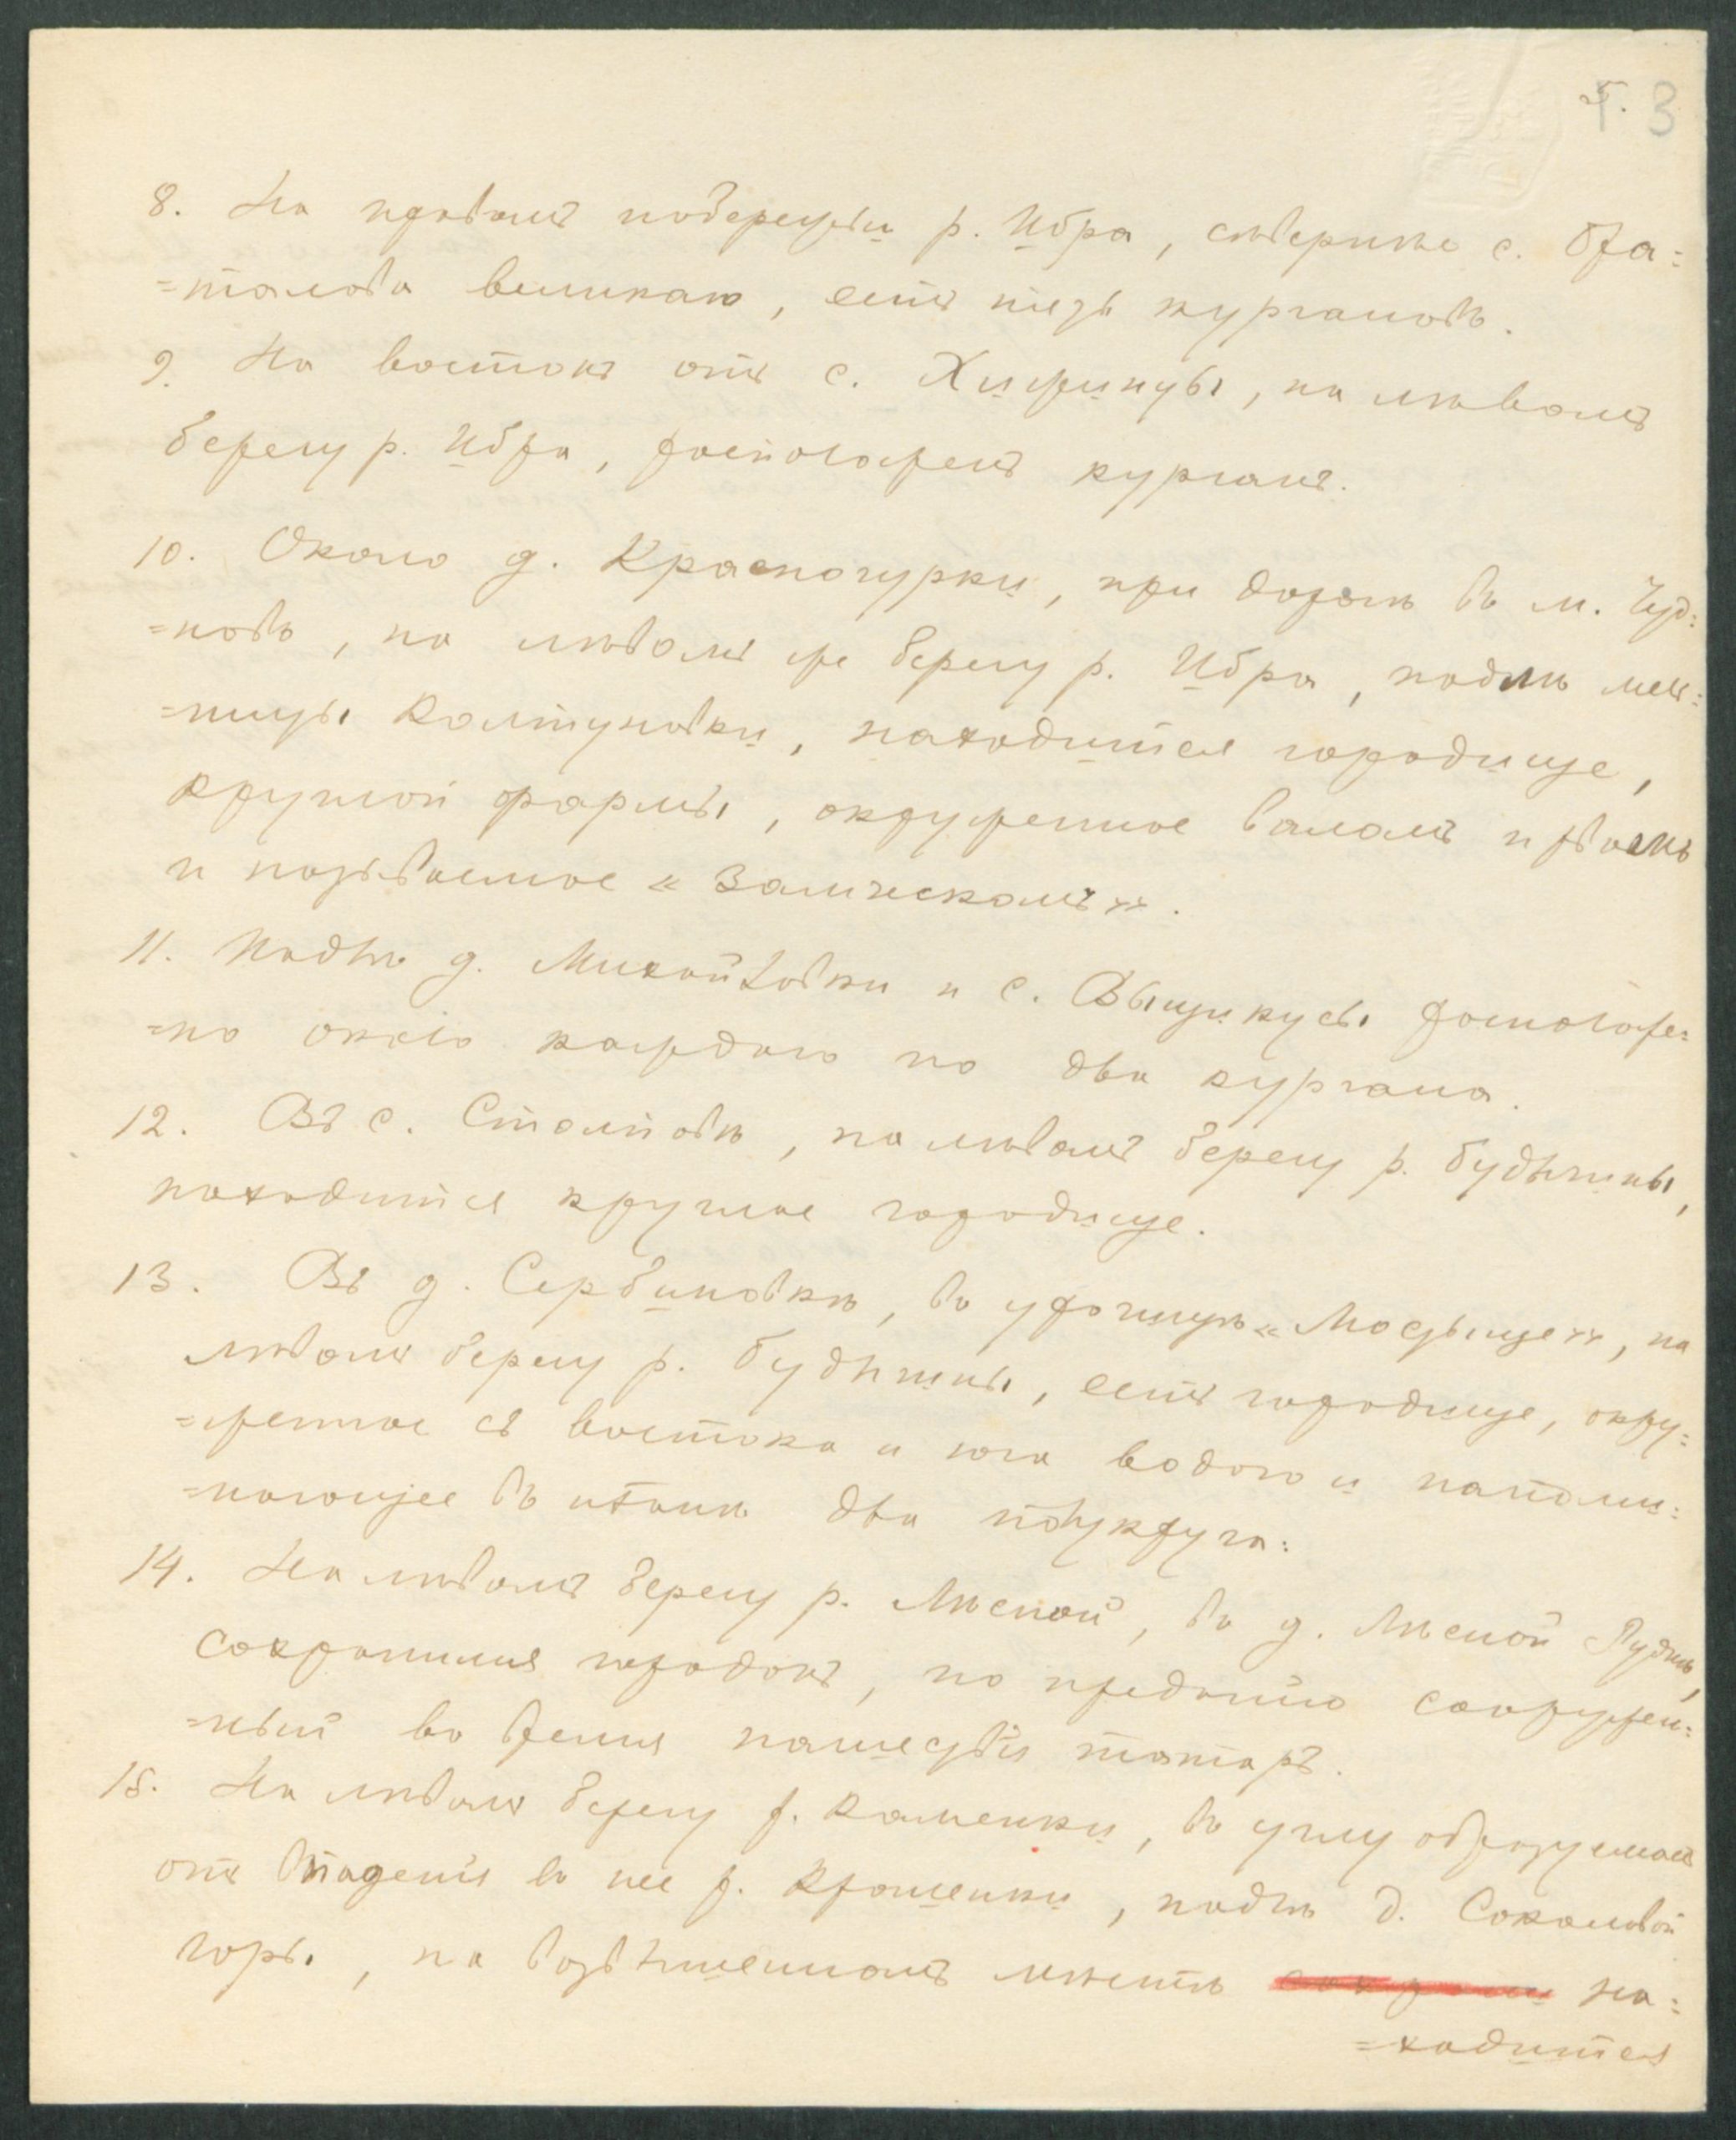 5. 3
8. На правомъ побережьи р. Ибра, сѣвернѣе с. Бра=
=талова великаго, есть пять кургановъ.
9. На востокъ отъ с. Хижинцы, на лѣвомъ
берегу р. Ибра, расположенъ курганъ.
10. Около д. Красногурки, при дорогѣ въ м. Чуд=
=новъ, на лѣвомъ же берегу р. Ибра, подлѣ мель=
=ницы Колтуновки, находится городище,
круглой формы, окруженное валомъ и рвомъ
и называемое «Замческомъ».
11. Подлѣ д. Михайловки и с. Выщикусы расположе=
=но около каждаго по два кургана.
12. Въ с. Столповѣ, на лѣвомъ берегу р. Будычины,
находится круглое городище.
13. Въ д. Сербиновкѣ, въ урочищѣ «Мосьище», на
лѣвомъ берегу р. Будычины, есть городище, окру=
=женное съ востока и юга водою и напоми=
=нающее въ планѣ два полукруга:
14. На лѣвомъ берегу р. Лѣсной, въ д. Лѣсной Рудкѣ,
сохранился городокъ, по преданію сооружен=
=ный во время нашествія татаръ.
15. На лѣвомъ берегу р. Каменки, въ углу образуемомъ
отъ впаденія въ нее р. Крошенки, подлѣ д. Соколовой
горы, на возвышенномъ мѣстѣ сохрани на=
=ходится